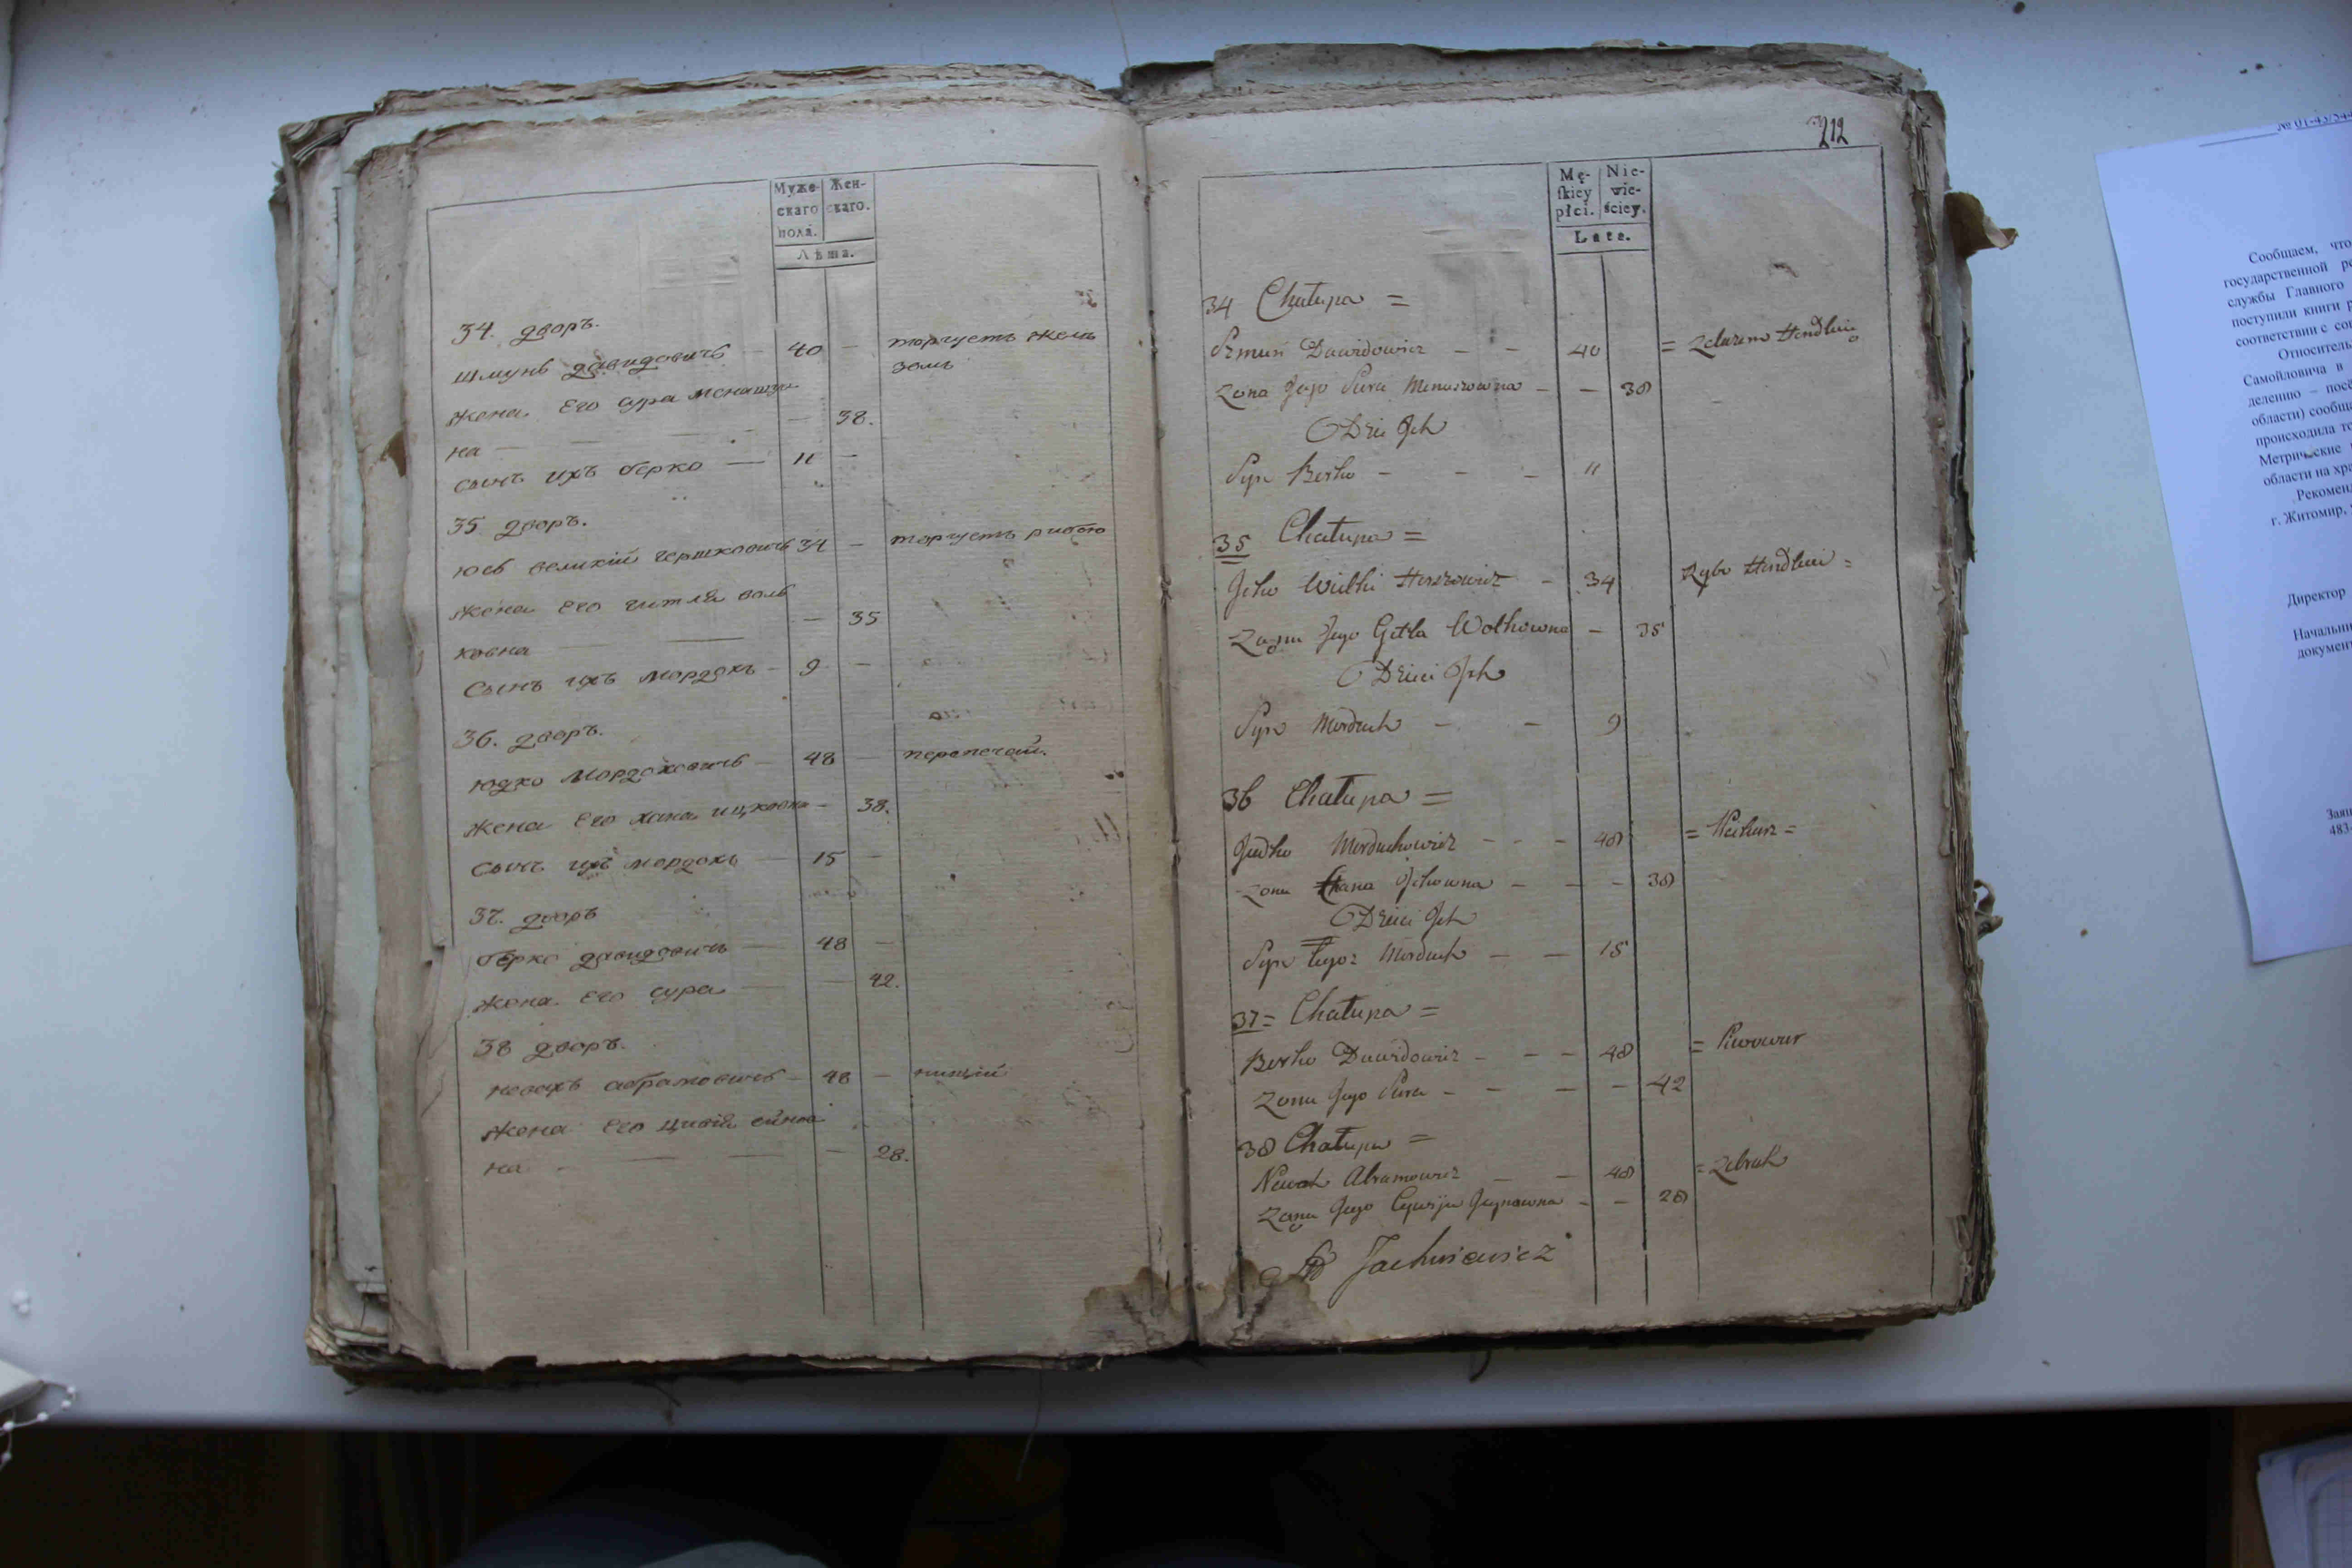 Муже-
скаго
пола.
Жен-
скаго.
Лѣта.
34. дворъ.
Шмунь давидовичь — 40 — торгуетъ желѣ
зомъ
жена его сура менашов
на — — — 38.
сынъ ихъ берко — 11 —
35 дворъ.
юсь великій гершковичь 34 — торгуетъ рибою
жена его гитляволь
ковна — — — 35
сынъ ихъ мордохъ — 9 —
36. дворъ.
юдко мордоховичь — 48 — перепечай.
жена его хана ицковна — 38.
сынъ ихъ мордохъ — 15 —
37. дворъ
берко давидовичь — 48 —
жена его сура — — 42.
38 дворъ.
невахъ абрамовичь — 48 — нищій
жена его цивія
на — — — 28.
212
Mę-
skiey
płci.
Nie-
wie-
ściey.
Lata.
34 Chałupa =
Szmuń Dawidowicz — — 40 = Zelazem Handluie
Zona Jego Sura Menaszowna — — 38
Dzieci Ich
Syn Berko — — — 11
35 Chałupa =
Jcko Wielki Herszkowicz — 34 Rybo Handluie =
Zona Jego Gitla Wolkowna — 35
Dzieci Ich
Syn Morduch — — 9
36 Chałupa =
Judko Morduchowicz — — — 48 = Piekarz =
Zona Chana Ickowna — — — 38
Dzieci Ich
Syn Tegoz Morduch — — 15
37 = Chałupa =
Berko Dawidowicz — — — 48 = Piwowar
Zona Jego Sura — — — — 42
38 Chałupa =
Newach Abramowicz — — 48 = Zebrak
Zona Jego Cywija — — 28
Jachniewicz
Сообщаем, что
государственной
службы Главного
поступили книги
соответствии с
Относитель
Самойловича в
делению –
области)
происходила
Метрические
области на
Рекомен
г. Житомир,
Директор
Начальни
докумен
483-